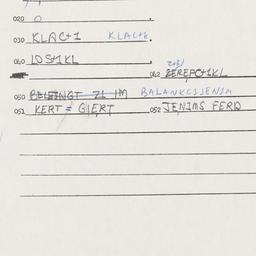 020 0
030 KLAC+1 KLAC+E.
060 LOS+1KL
062 ZEREPC+1KL
050 BELEINGT ZL IM BALANKCIJENIM
051 KERT = GIERT 052 JENIMS FERD